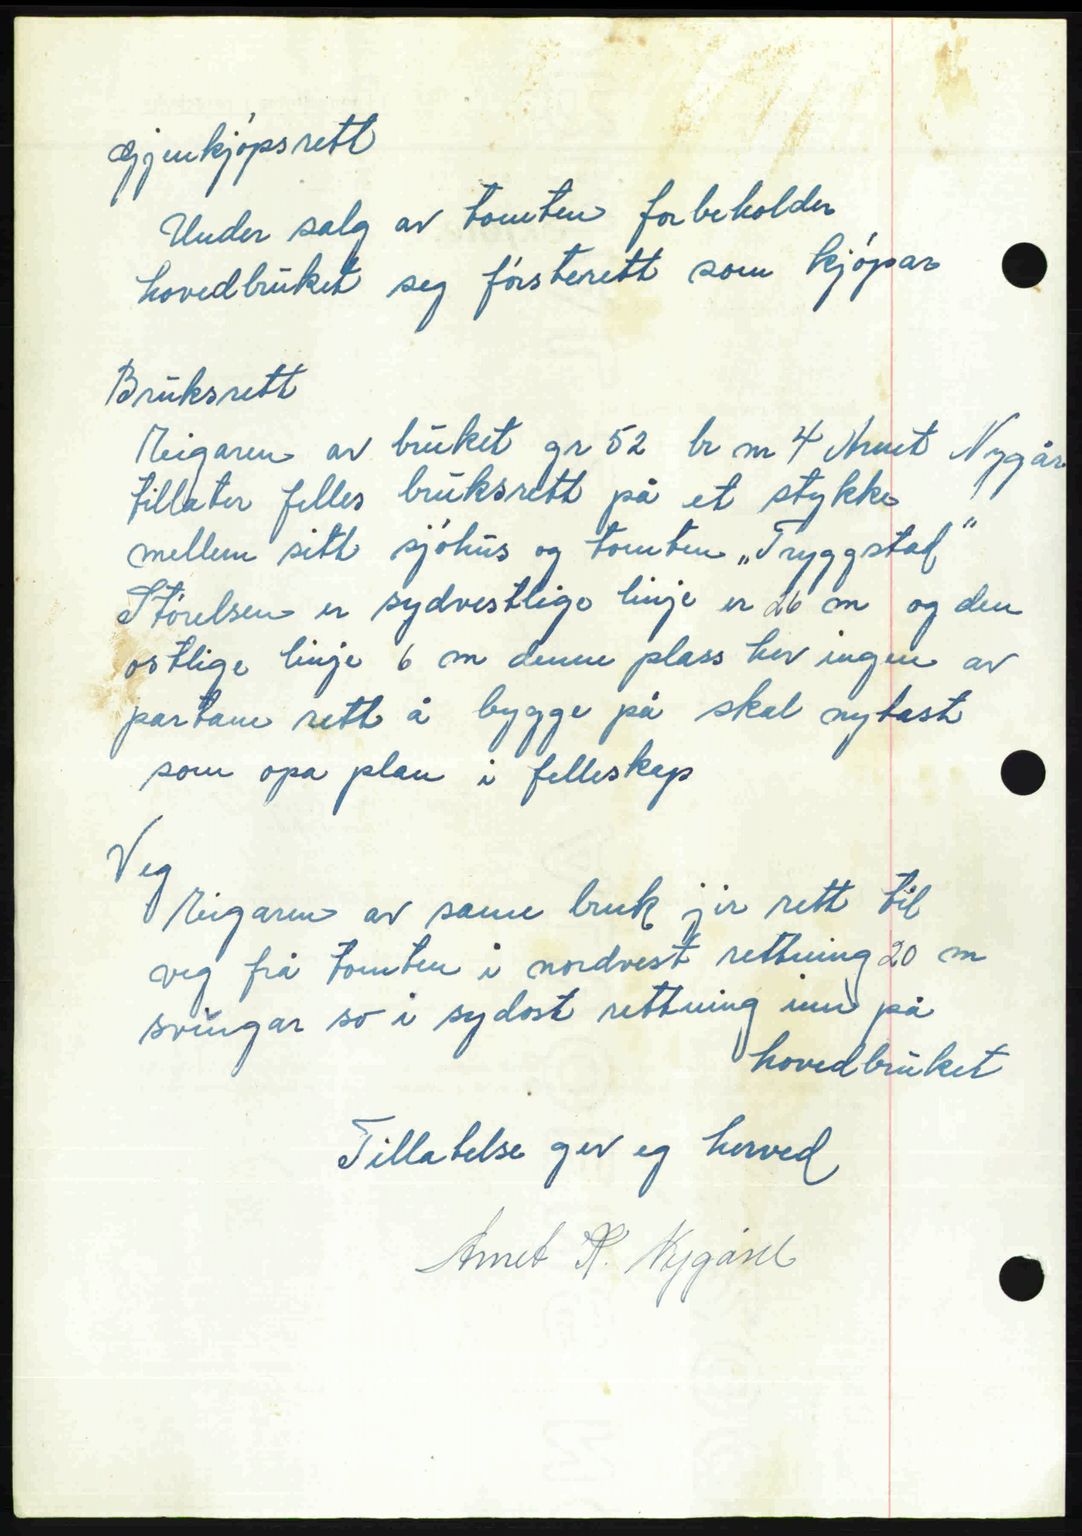 Gjenkjøpsrett
Under salg av tomten forbeholder
hovedbruket seg førsterett som kjøpar
Bruksrett
Eigaren av bruket gr 52 br nr 4 Arnet Nygår
tillater felles bruksrett på et stykke
mellem sitt sjøhus og tomten „Tryggstad"
Størelsen er sydvestlige linje er 26 m og den
østlige linje 6 m denne plass hev ingen av
partane rett å bygge på skal nytast
som opa plan i felleskap
Veg
Eigaren av same bruk jir rett til
veg frå tomten i nordvest rettning 20 m
svingar so i sydost rettning inn på
hovedbruket
Tillatelse gev eg herved
Arnet K. Nygård